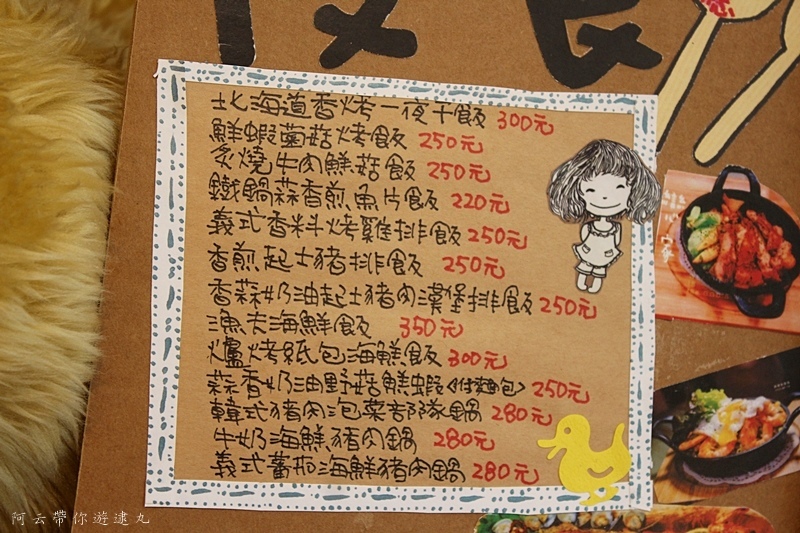 夜食
北海道香烤一夜干飯 300元
鮮蝦蘭菇烤飯 250元
炙燒牛肉鮮菇飯 250元
鐵鍋蒜香煎魚片飯 220元
義式香料烤雞排飯 250元
香煎起士豬排飯 250元
香蒜奶油起士豬肉漢堡排飯 250元
漁夫海鮮飯 350元
爐烤紙包海鮮飯 300元
蒜香奶油野菇鮮蝦《付麵包》 250元
韓式豬肉泡菜部隊鍋 280元
牛奶海鮮豬肉鍋 280元
義式蕃茄海鮮豬肉鍋 280元
阿云帶你遊逮丸